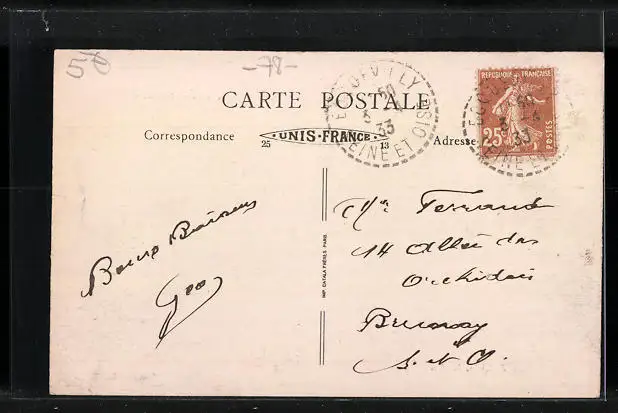 50
-78-
CARTE POSTALE
Correspondance
UNIS-FRANCE
25
13
Adresse
50
33
SEINE ET OISE
REPUBLIQUE FRANÇAISE
25c
POSTES
Mr Ferrand
14 Allée des
Orchidées
Brunoy
S. et O.
Bons Baisers
Geo
IMP. CATALA FRÈRES PARIS